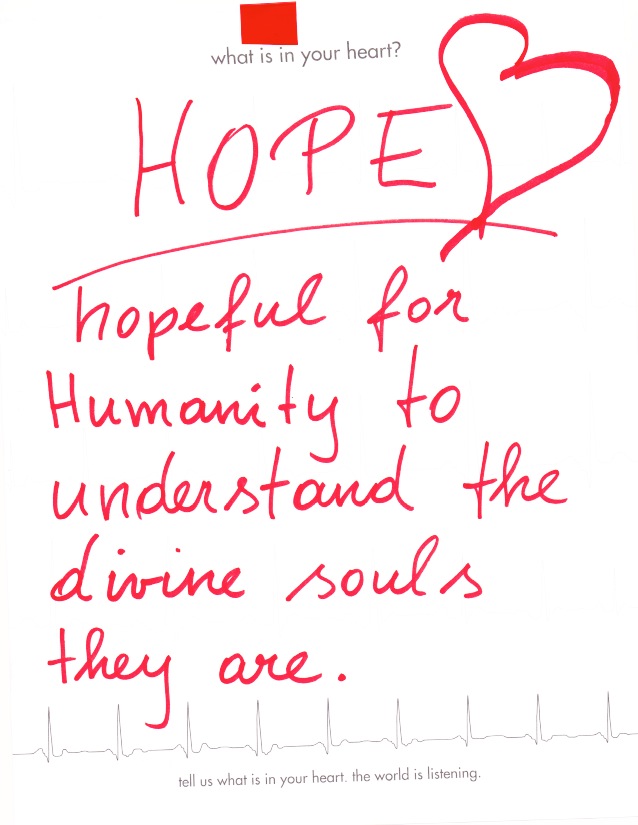 what is in your heart?
HOPE
hopeful for
Humanity to
understand the
divine souls
they are.
tell us what is in your heart. the world is listening.